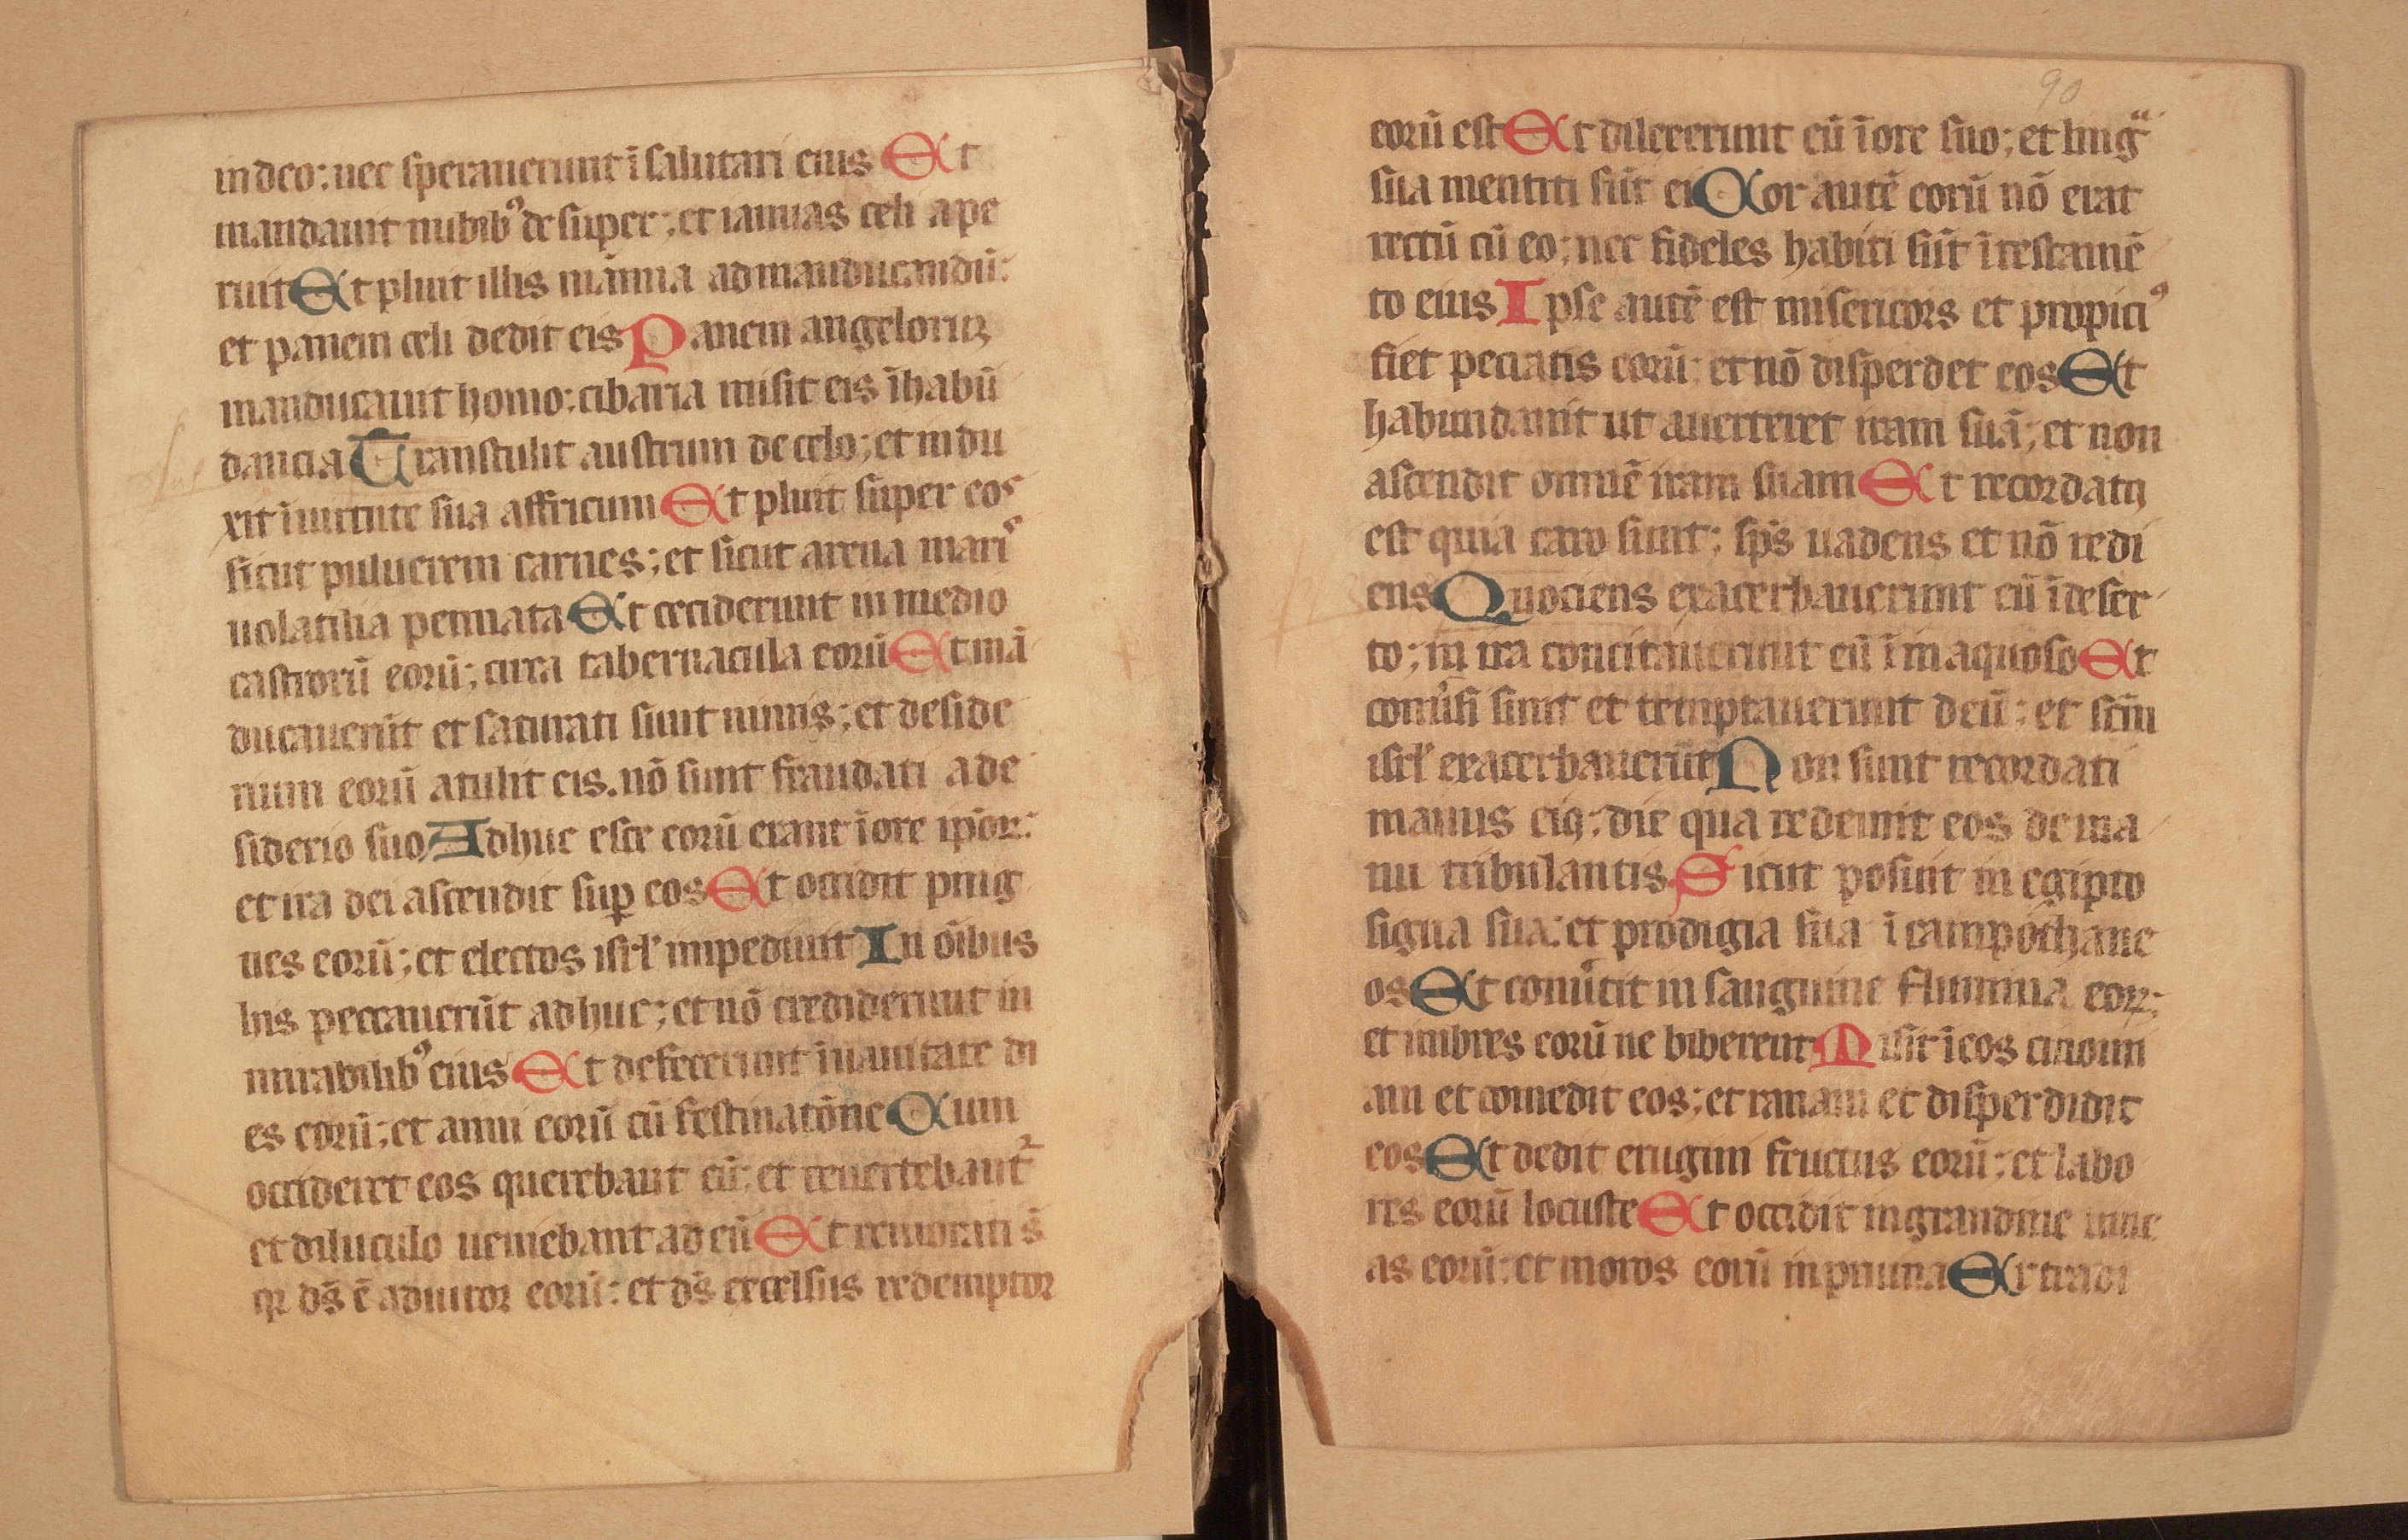 in deo: nec sperauerunt ī salutari eius Et
mandauit nubibꝰ desuper; et ianuas celi ape
ruit Et pluit illis manna ad manducandū:
et panem celi dedit eis Panem angeloruꝫ
manducauit homo: cibaria misit eis ī habū
dancia Transtulit austrum de celo; et indu
xit ī uirtute sua affricum Et pluit super eos
sicut puluerem carnes; et sicut arena maris
uolatilia pennata Et ceciderunt in medio
castrorū eorū; circa tabernacula eorū Et mā
ducauerūt et saturati sunt nimis; et deside
rium eorū atulit eis. nō sunt fraudati a de
siderio suo Adhuc esce eorū erant ī ore ip̄oꝝ:
et ira dei ascendit suꝑ eos Et occidit ping
ues eorū; et electos isrł impediuit In oībus
his peccauerūt adhuc; et nō crediderunt in
mirabilibꝰ eius Et defecerunt ī uanitate di
es eorū; et anni eorū cū festinatōne Cum
occideret eos querebant eū: et reuertebantᷣ
et diluculo ueniebant ad eū Et remorati s̄
qꝛ ds̄ ē adiutor eorū: et ds̄ excelsus redemptor
90
eorū est Et dilexerunt eū ī ore suo; et lingᷓ
sua mentiti sūt ei Cor autē eorū nō erat
rectū cū eo; nec fideles habiti sūt ī testamē
to eius Ipse autē est misericors et propiciꝰ
fiet peccatis eorū: et nō disperdet eos Et
habundauit ut auerteret iram suā; et non
ascendit omnē iram suam Et recordatꝯ
est quia caro sunt; sp̄s uadens et nō redi
ens Quociens exacerbauerunt eū ī deser
to; in ira concitauerunt eū ī inaquoso Et
conůsi sunt et temptauerunt deū: et scm̄
isrł exacerbauerūt Non sunt recordati
manus eiꝯ; die qua redemit eos de ma
nu tribulantis Sicut posuit in egipto
signa sua: et prodigia sua ī campo thane
os Et conůtit in sanguine flumina eoꝝ:
et imbres eorū ne biberent Misit ī eos cinomi
am et comedit eos; et ranam et disperdidit
eos Et dedit erugini fructus eorū: et labo
res eorū locuste Et occidit in grandine uine
as eorū: et moros eorū in pruina Et tradi